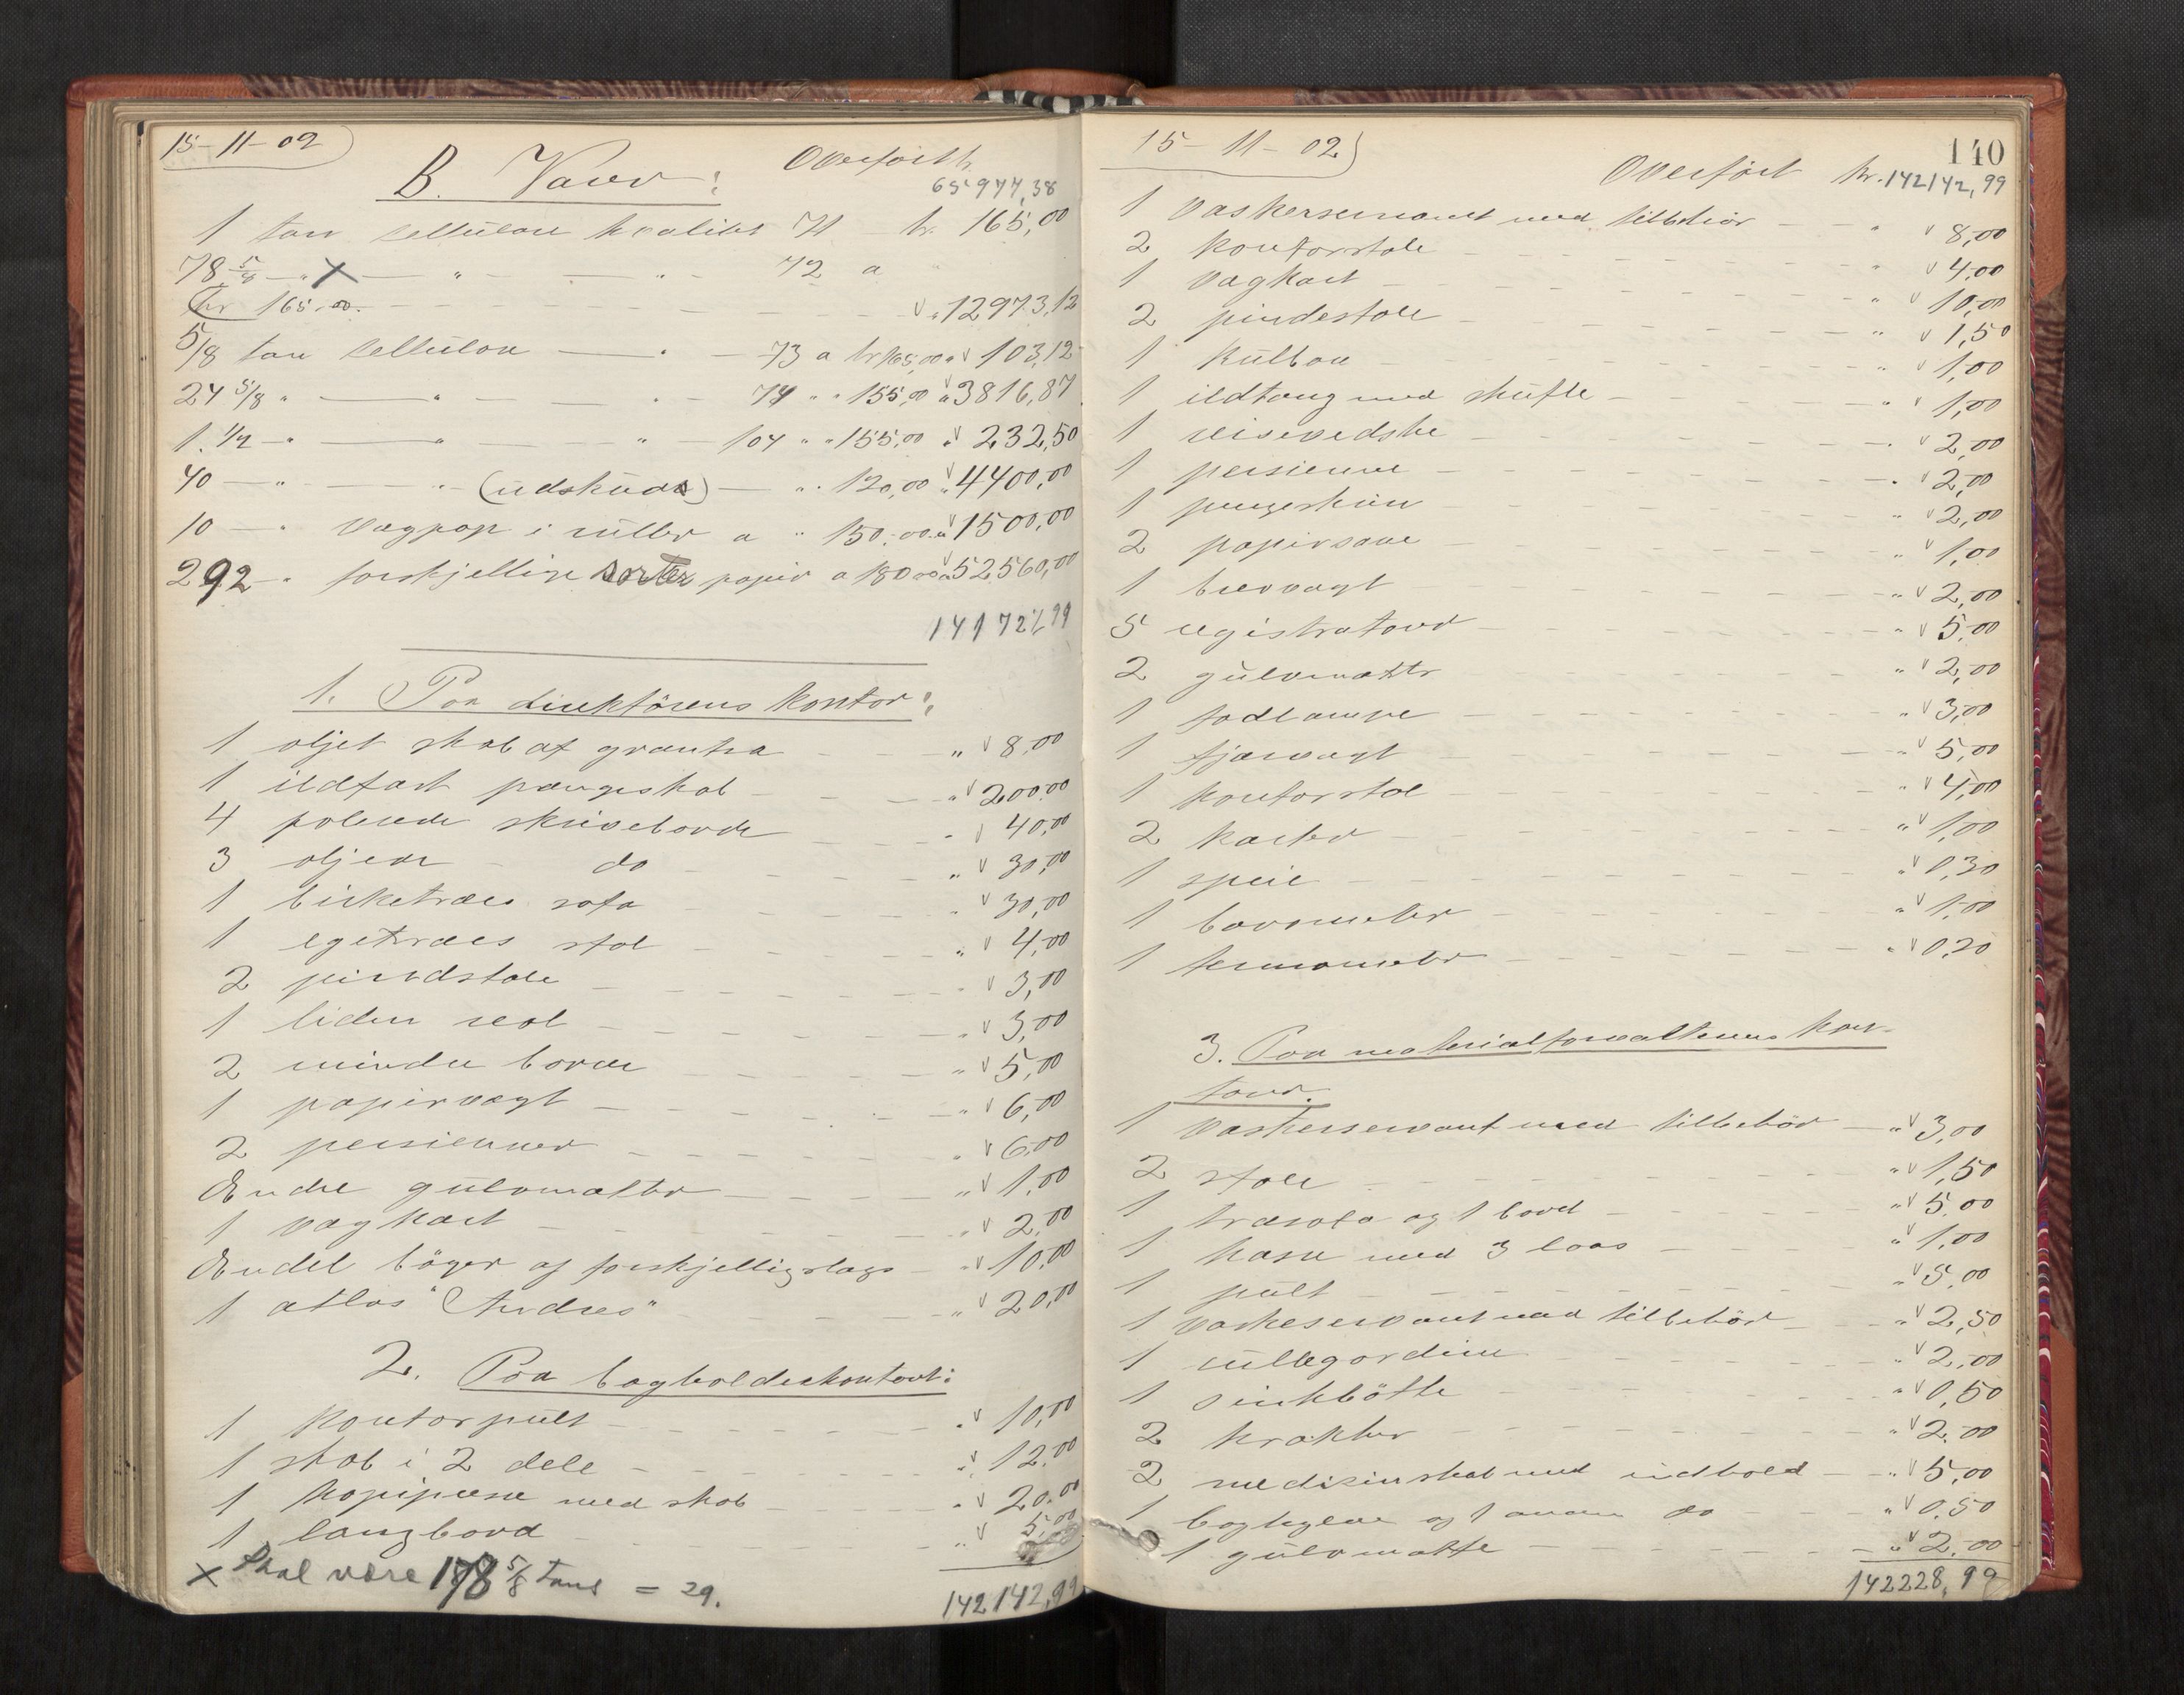 15-11-02
B. Varer:
Overført kr.
65977,38
1 ton cellulose kvalitet 71 - kr. 165,00
78 5/8 - " X - " - " - 72 a
kr 165,00. - - - v " 12973,12
5/8 ton cellulose - " - 73 a kr 165,00 " v 103,12
24 5/8 " - " - " - 74 " " 155,00 " v 3816,87
1. 1/2 - " - " - " 104 " " 155,00 " v 232,50
40 - " - " (udskuds) - " 120,00 " v 4400,00
10 - " vegpap i ruller a " 150,00 " v 1500,00
292 - " forskjellige sorter papir a 180,00 " v 52560,00
141727,99
1. Paa direktørens kontor:
1 oljet skab af grantræ - - " v 8,00
1 ildfast pengeskab - - " v 200,00
4 polerede skriveborde - - " v 40,00
3 oljede - do - - " v 30,00
1 birketræes sofa - - " v 30,00
1 egetræes stol - - " v 4,00
2 pindstole - - " v 3,00
1 liden reol - - " v 3,00
2 mindre borde - - " v 5,00
1 papirvegt - - " v 6,00
2 persienner - - " v 6,00
Endel gulvmatter - - " v 1,00
1 vægkart - - " v 2,00
Endel bøger af forskjelligslags - " v 10,00
1 atlas "Andres" - - " v 20,00
2. Paa bogholderkontoret:
1 kontorpult - - " v 10,00
1 skab i 2 dele - - " v 12,00
1 kopipresse med skab - - " v 20,00
1 langbord - - " v 5,00
X Skal være 178 5/8 tons = 29.
142142,99
15-11-02
140
Overført kr. 142142,99
1 vaskerservant med tilbehør - - " v 8,00
2 kontorstole - - " v 4,00
1 vægkart - - " v 10,00
2 pindestole - - " v 1,50
1 kulbox - - " v 1,00
1 ildtang med skuffe - - " v 1,00
1 reisevedske - - " v 2,00
1 persienne - - " v 2,00
1 pengeskrin - - " v 2,00
2 papirsaxe - - " v 1,00
1 brevvægt - - " v 2,00
5 registratorer - - " v 5,00
2 gulvmatter - - " v 2,00
1 fodlampe - - " v 3,00
1 fjærvægt - - " v 5,00
1 kontorstol - - " v 4,00
2 karter - - " v 1,00
1 speil - - " v 0,30
1 barometer - - " v 1,00
1 termometer - - " v 0,20
3. Paa materialforvalterens kon-
tour.
1 vaskerservant med tilbehør - " v 3,00
2 stole - - " v 1,50
1 træsofa og 1 bord - - " v 5,00
1 kasse med 3 laas - - " v 1,00
1 pult - - " v 5,00
1 vaskeservant med tilbehør - - " v 2,50
1 rullegardin - - " v 2,00
1 sinkbøtte - - " v 0,50
2 krakker - - " v 2,00
2 medisinskab med indhold - " v 5,00
1 boghylde og 1 anden do - - " v 0,50
1 gulvmatte - - " v 2,00
142228,99